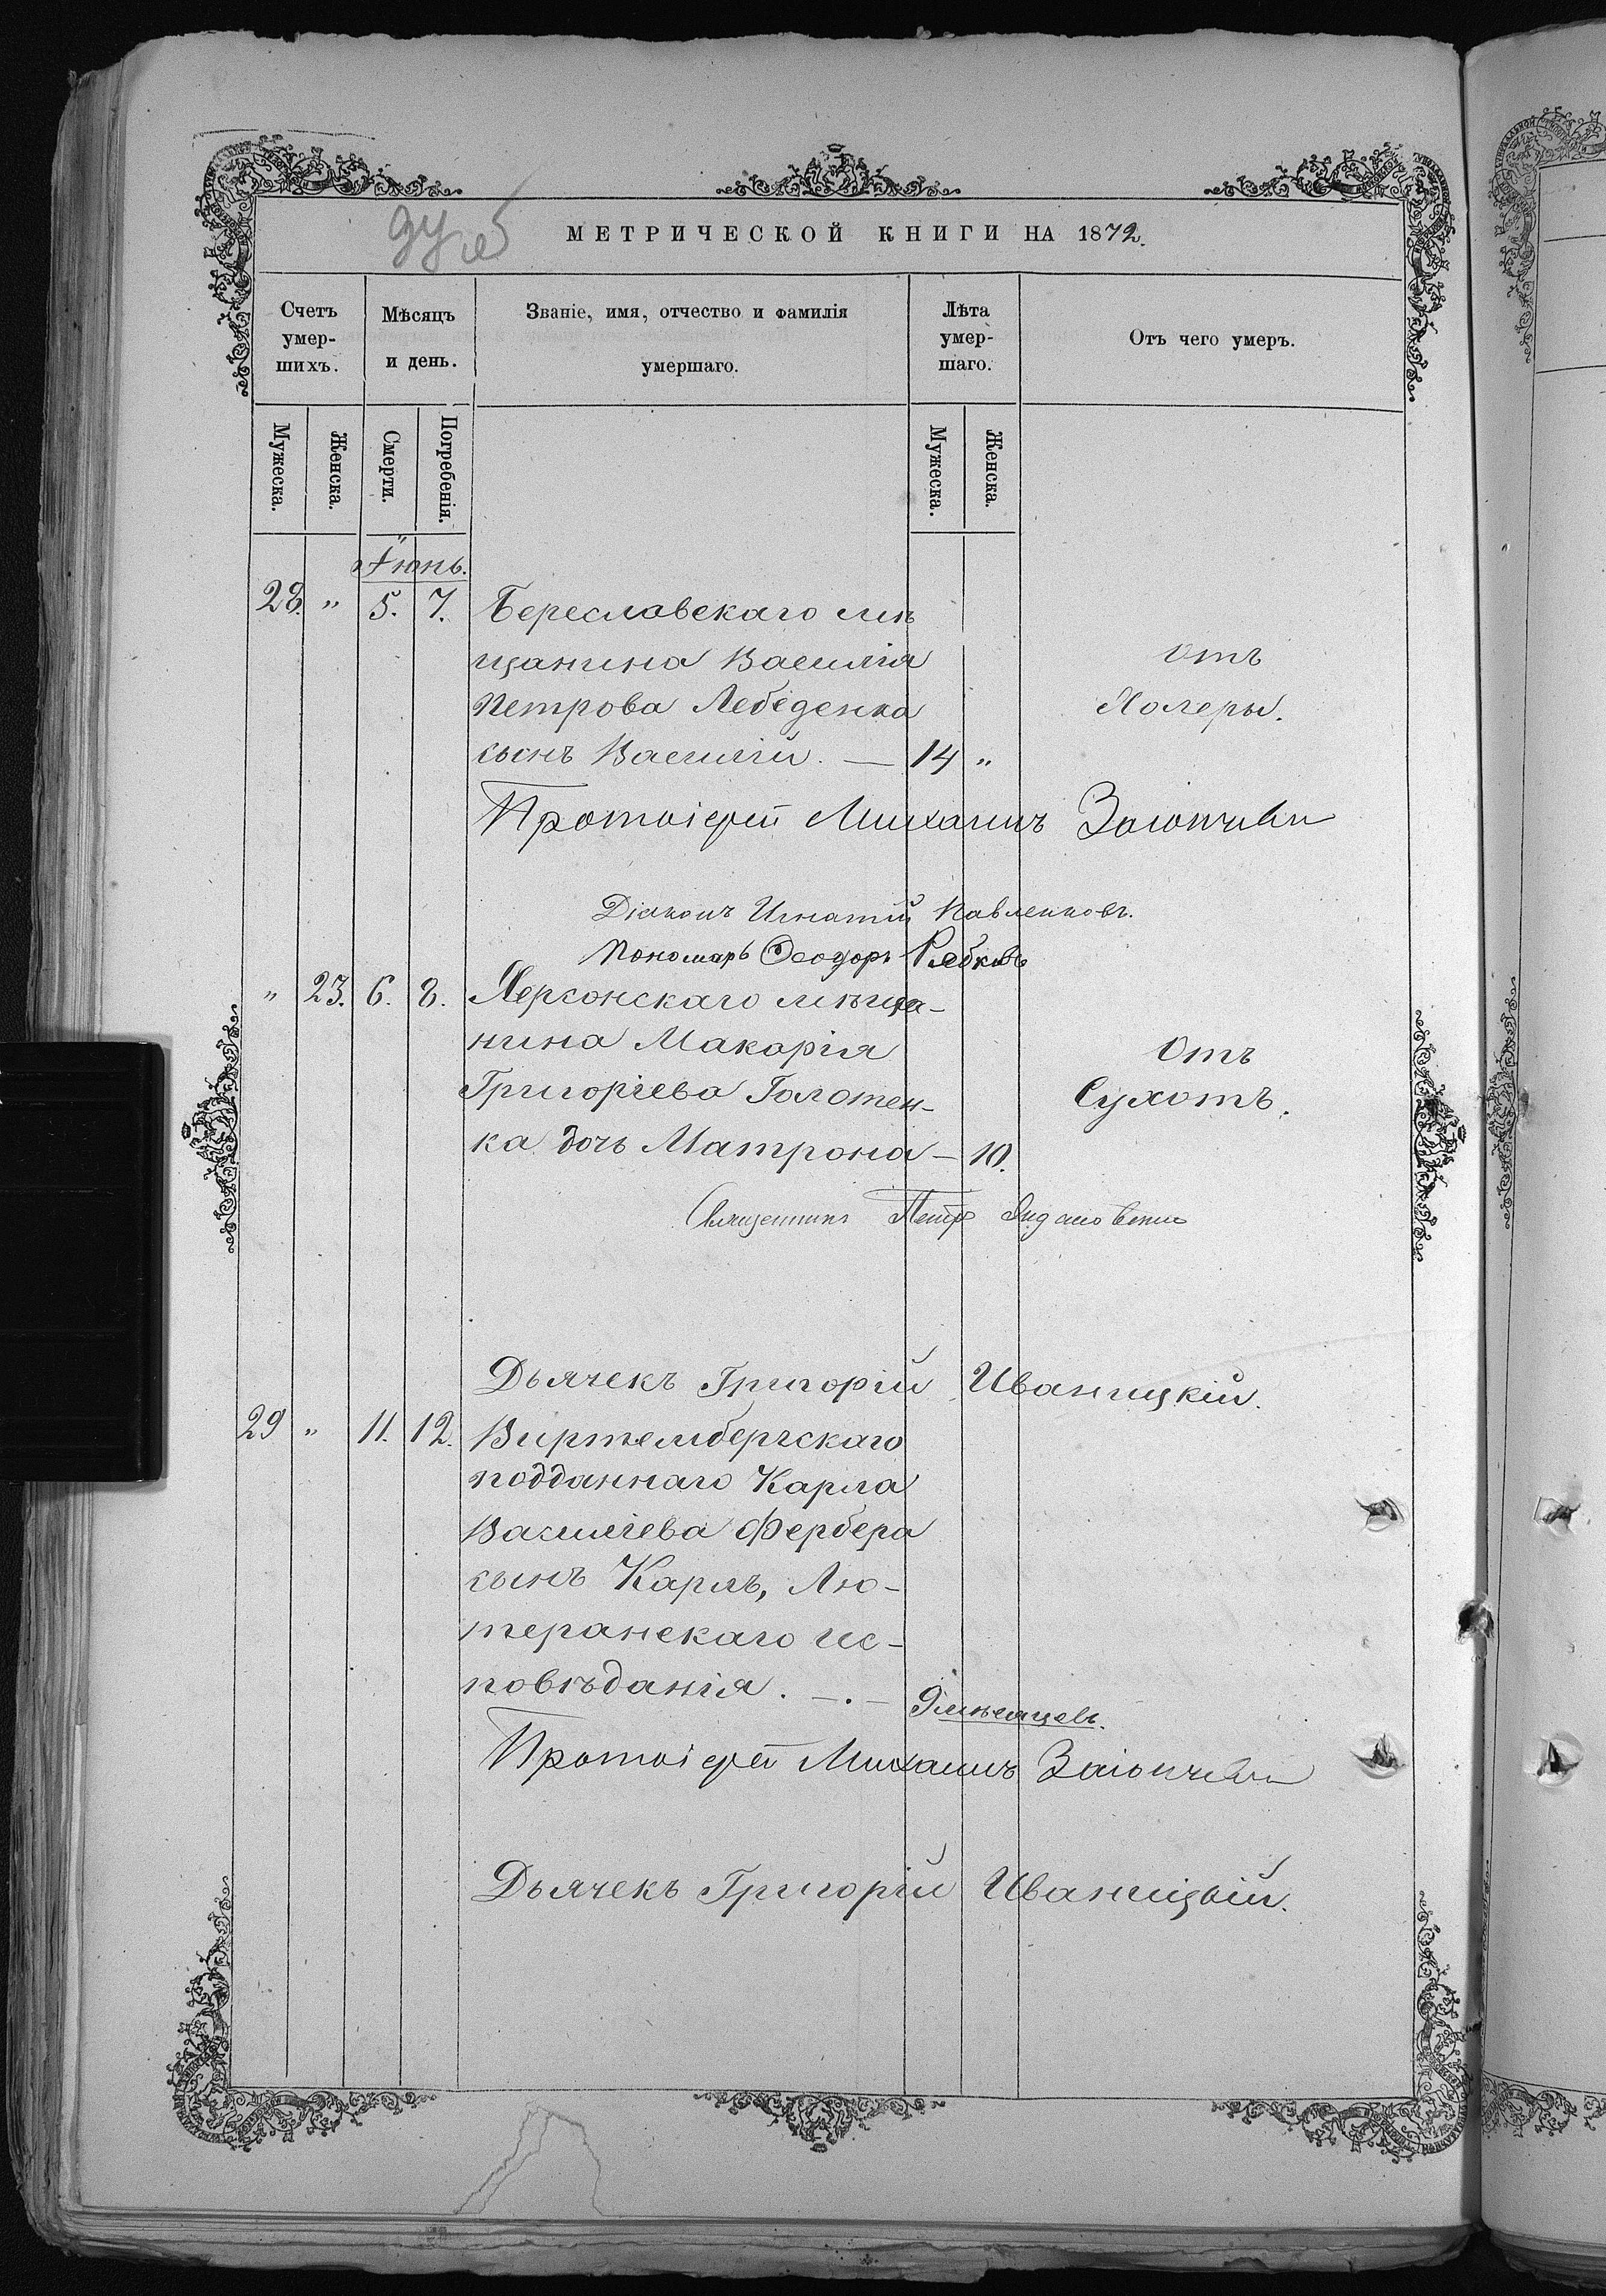 МЕТРИЧЕСКОЙ КНИГИ НА 1872.
Счетъ умер-шихъ.
Мѣсяцъ и день.
Званіе, имя, отчество и фамилія умершаго.
Лѣта умер-шаго.
Отъ чего умеръ.
Мужеска.
Женска.
Смерти.
Погребенія.
Мужеска.
Женска.
Іюнь.
28. " 5. 7. Береславскаго мѣ
щанина Василія отъ
Петрова Лебеденка Холеры.
сынъ Василій. — 14 "
Протоіерей Михаилъ
Діаконъ Игнатій Павленковъ.
Пономарь Ѳеодоръ Рябковъ
" 23. 6. 8. Херсонскаго мѣща-
нина Макарія Отъ
Григоріева Голотен- Сухотъ.
ка дочь Матрона — 10.
Священникъ Петръ
Дьячекъ Григорій Иваницкій.
29 " 11. 12. Виртембергскаго
подданнаго Карла
Василіева Фербера
сынъ Карлъ, Лю-
теранскаго ис-
повѣданія. —.— 9 мѣсяцевъ.
Протоіерей Михаилъ
Дьячекъ Григорій Иваницкій.